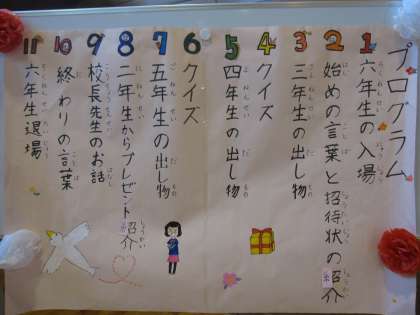 プログラム
1 六年生の入場
2 始めの言葉と招待状の紹介
3 三年生の出し物
4 クイズ
5 四年生の出し物
6 クイズ
7 五年生の出し物
8 二年生からプレゼント紹介
9 校長先生のお話
10 終わりの言葉
11 六年生退場